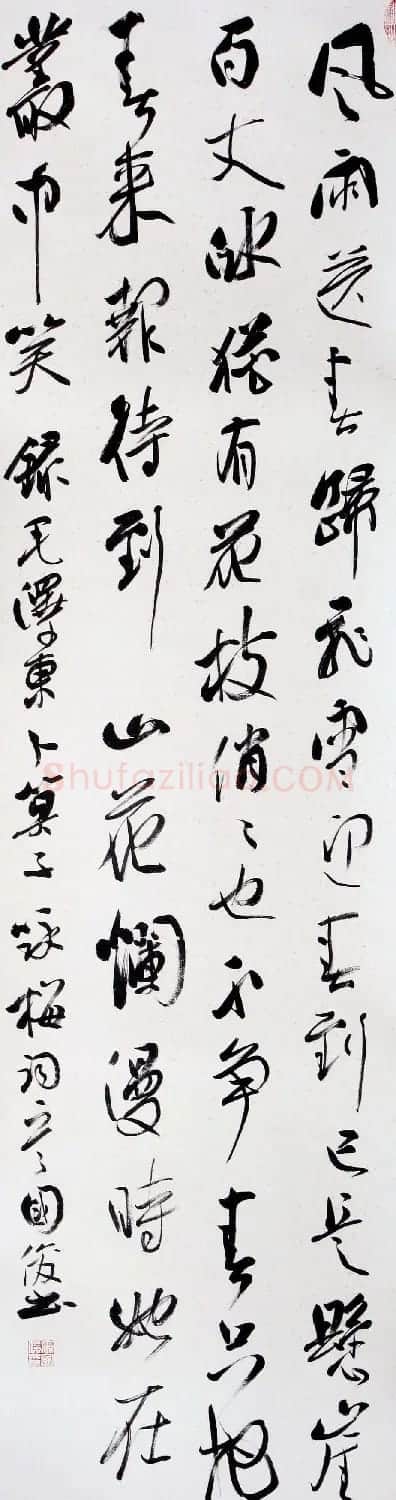 风雨送春歸飛雪迎春到已是懸崖
百丈冰猶有花枝俏俏也不争春只把
春来報待到山花爛漫時她在
叢中笑 録毛澤東卜算子詠梅詞 国俊书
Shufaziliao.COM